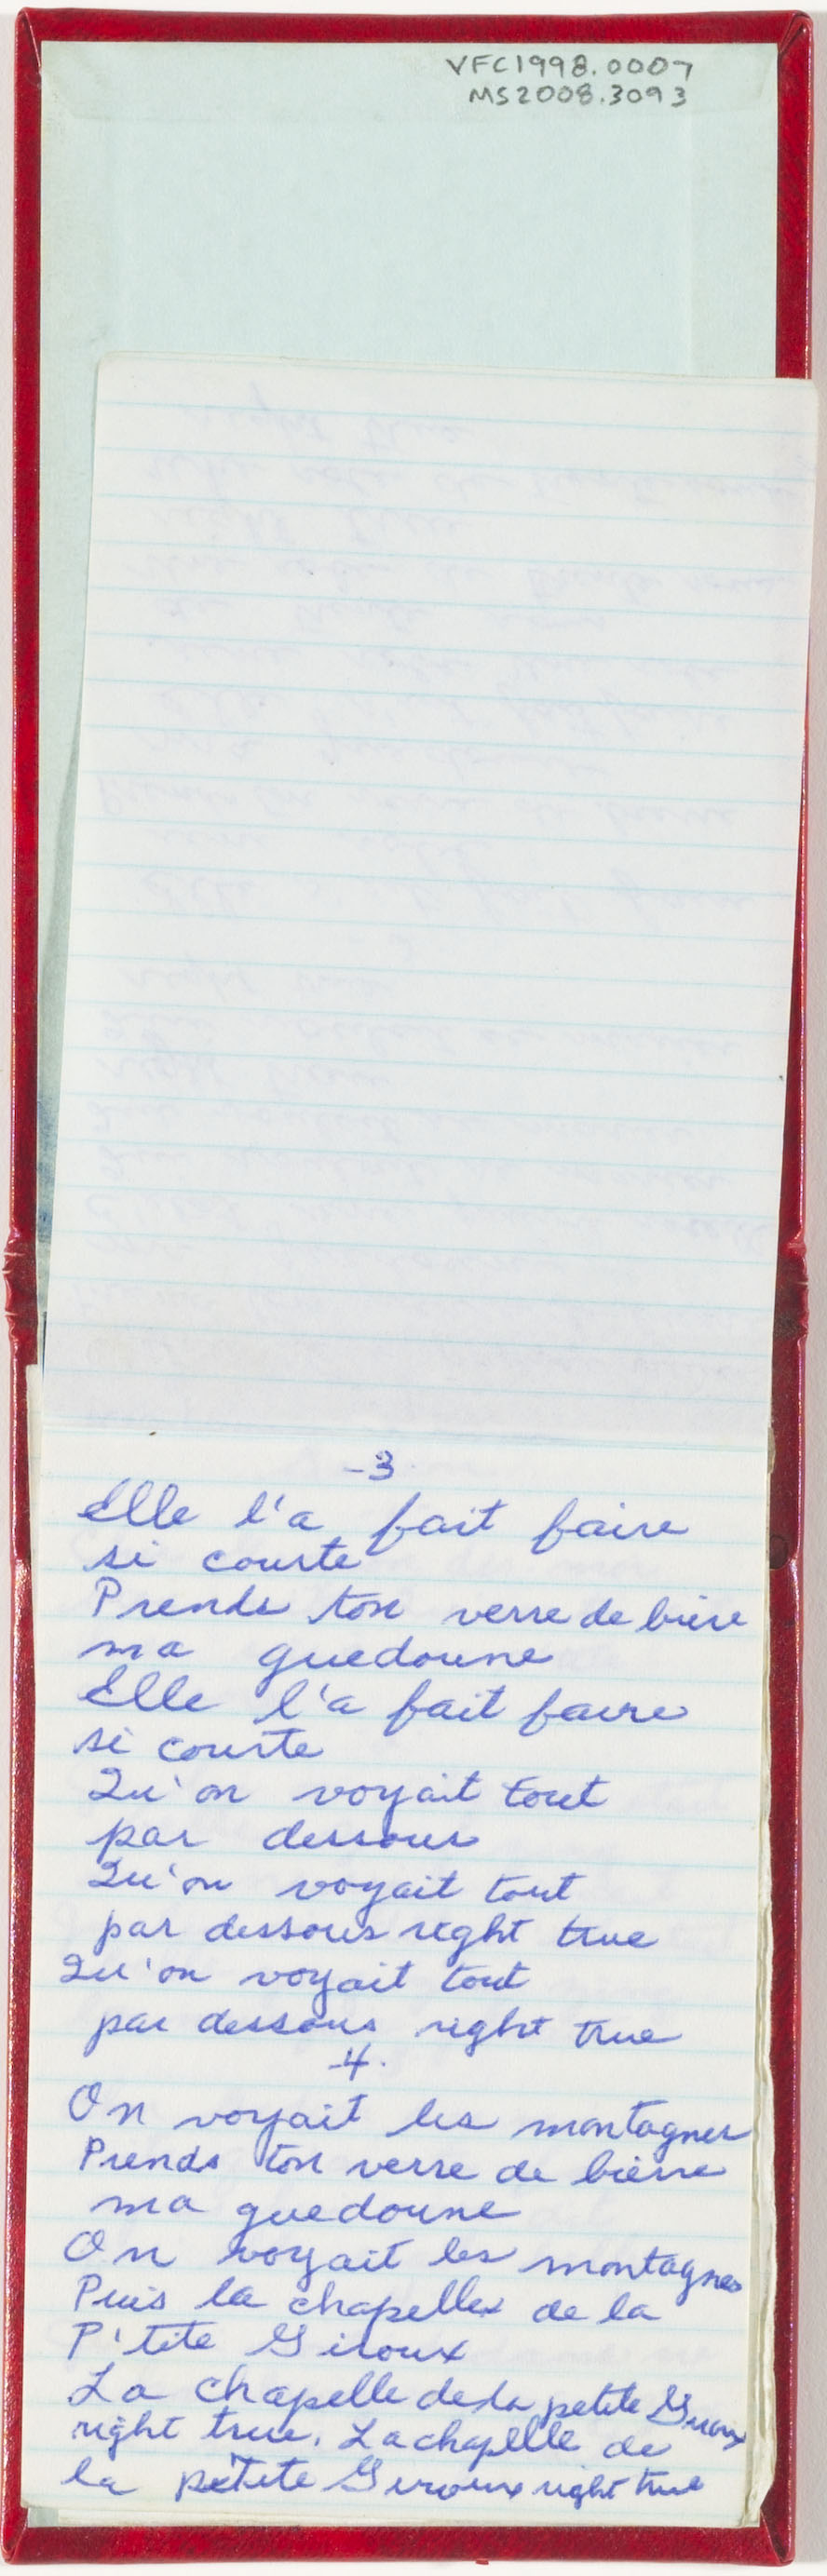 VFC1998.0007
MS2008.3093
-3
Elle l'a fait faire
si courte
Prends ton verre de bière
ma guedoune
Elle l'a fait faire
si courte
Qu'on voyait tout
par dessous
Qu'on voyait tout
par dessous right true
Qu'on voyait tout
par dessous right true
4.
On voyait les montagnes
Prends ton verre de bière
ma guedoune
On voyait les montagnes
Puis la chapelle de la
P'tite Giroux
La chapelle de la petite Giroux
right true. La chaplle de
la petite Giroux right true